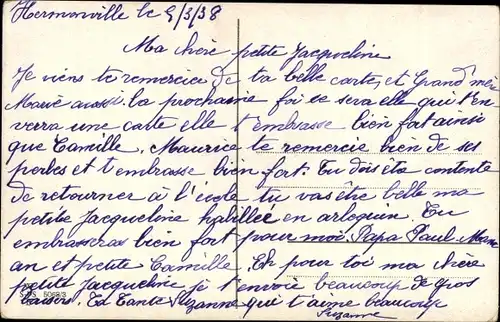 Hermonville le 5/3/38
Ma chère petite Jacqueline
Je viens te remercier de ta belle carte, et Grand'mère
Marie aussi. La prochaine foi se sera elle qui t'en-
verra une carte elle t'embrasse bien fort ainsi
que Camille, Maurice te remercie bien de ses
perles et t'embrasse bien fort. Tu dois être contente
de retourner à l'école tu vas être belle ma
petite Jacqueline habillée en arlequin. Tu
embrasseras bien fort pour moi Papa Paul Mam
an et petite Camille. Et pour toi ma chère
petite Jacqueline je t'envoie beaucoup de gros
baisers. Ta Tante Suzanne qui t'aime beaucoup
Suzanne
5068/3